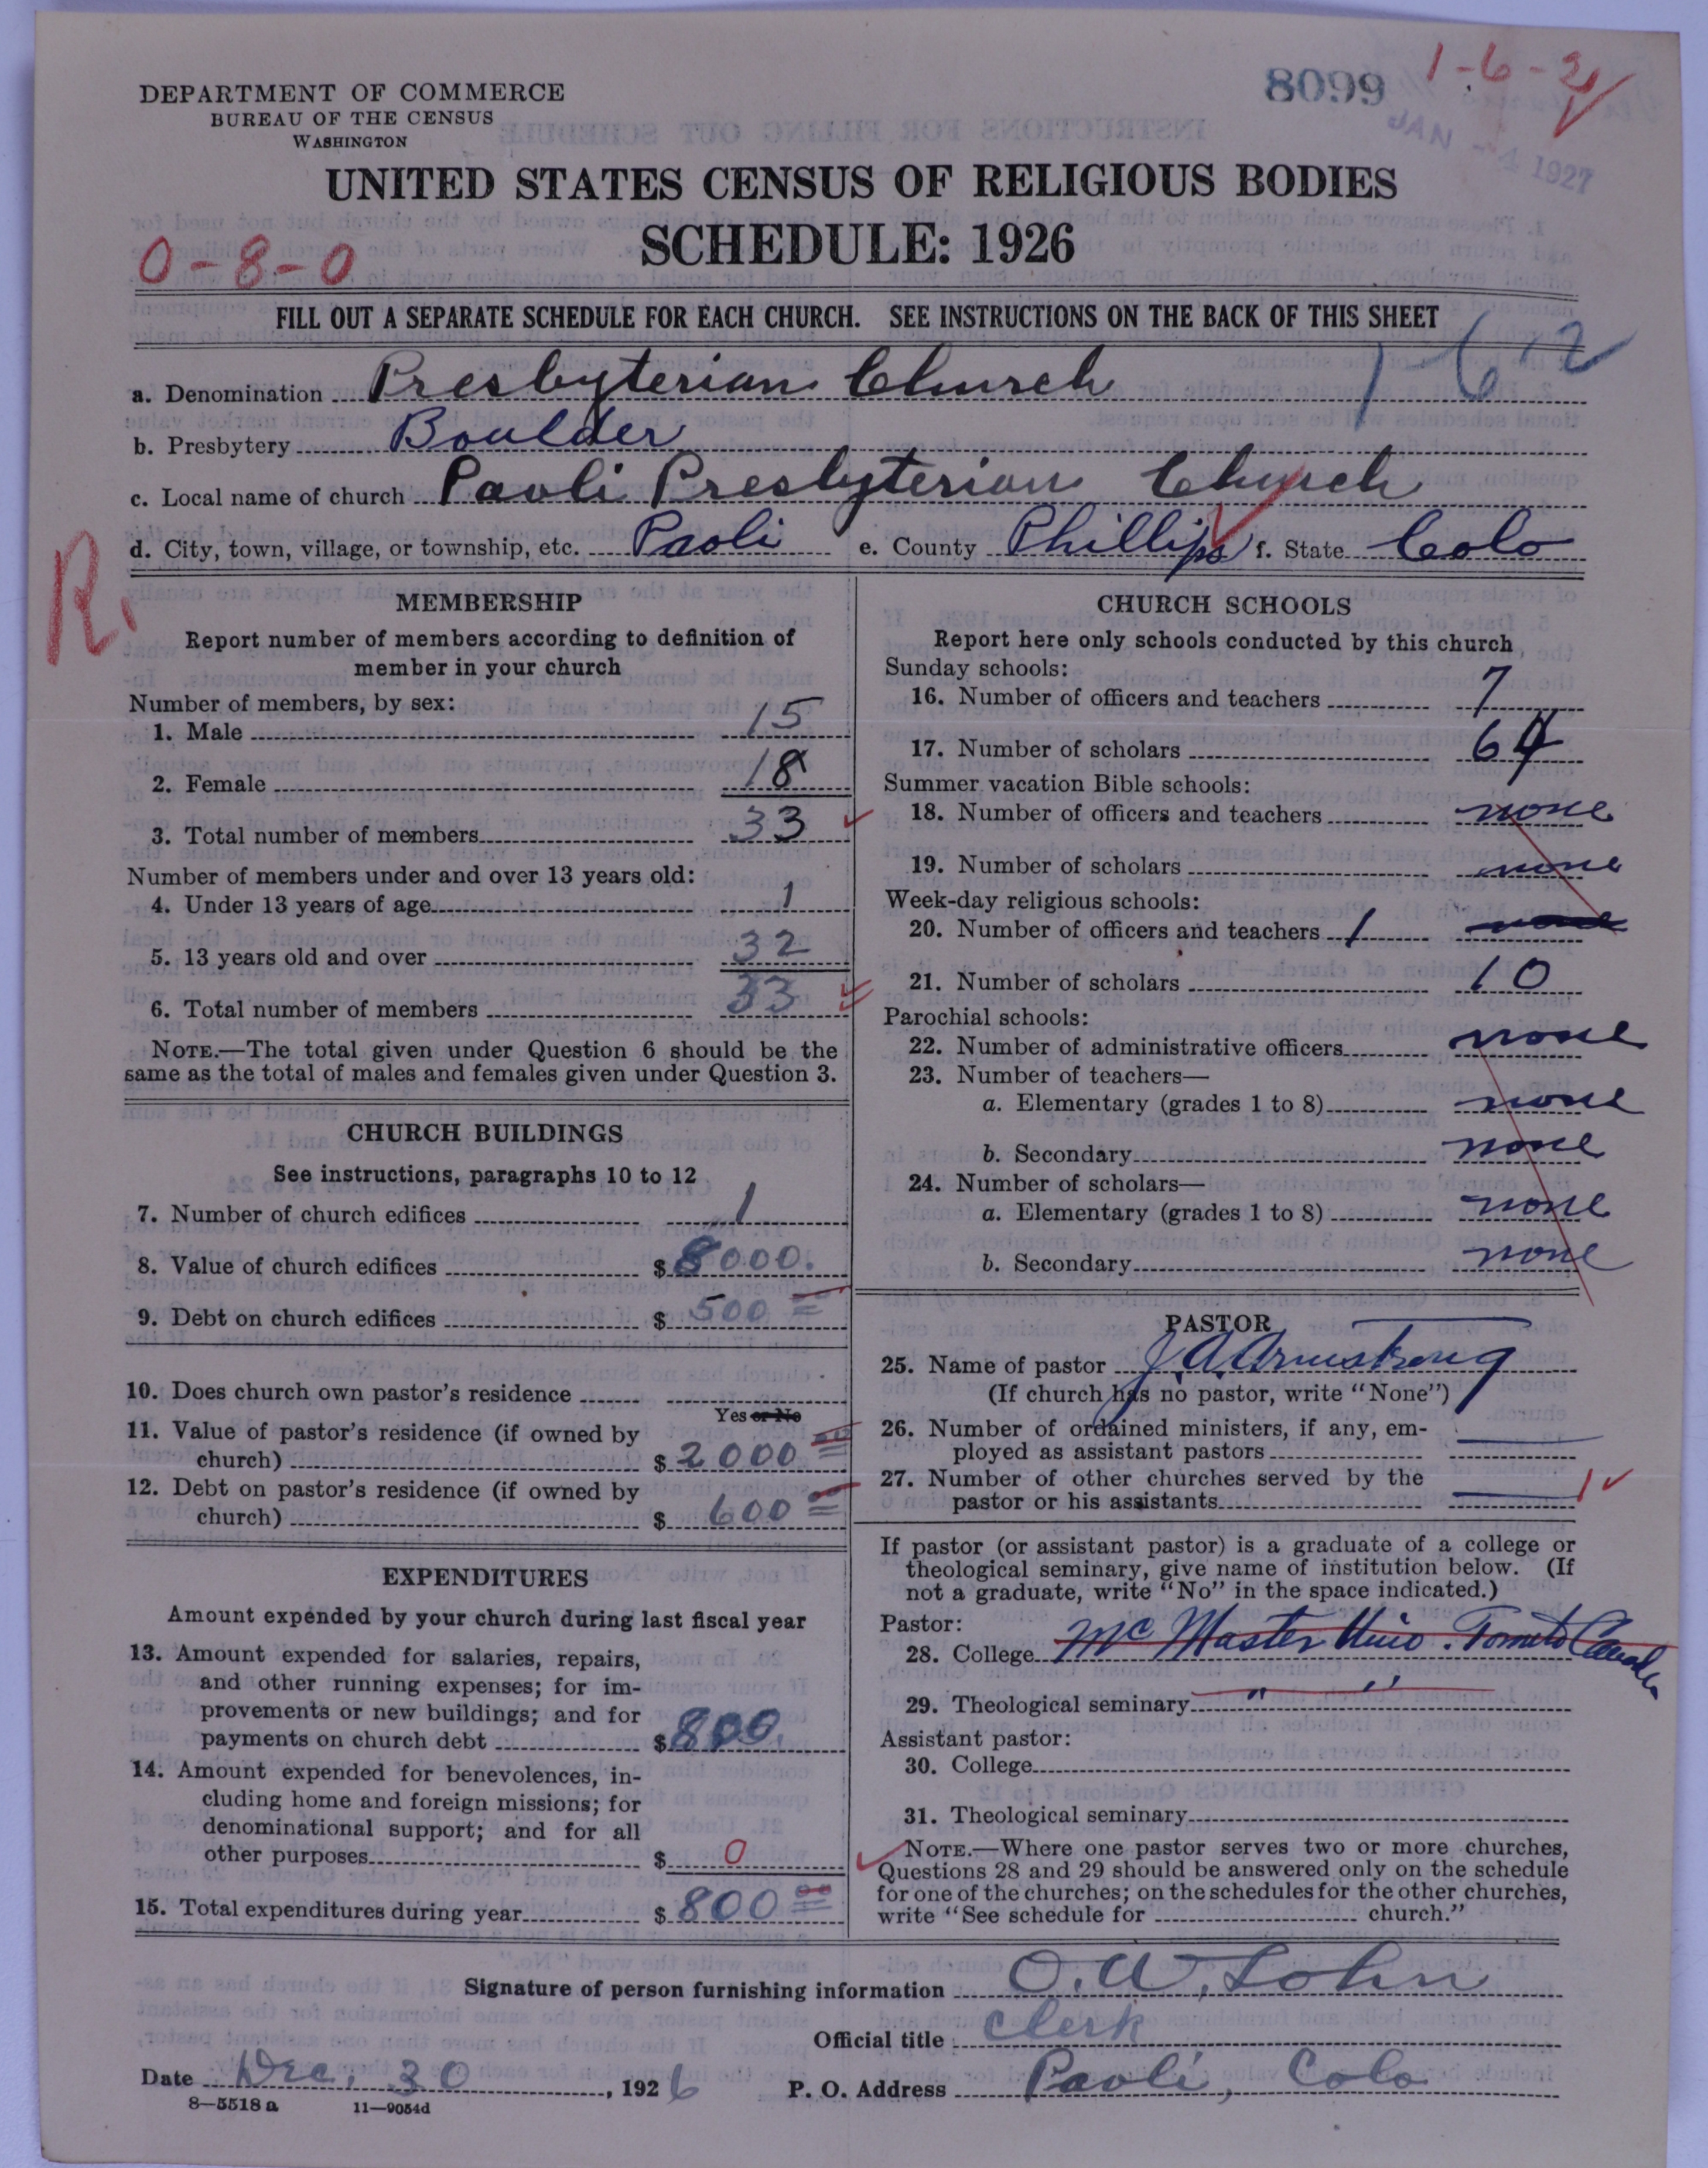 DEPARTMENT OF COMMERCE
BUREAU OF THE CENSUS
WASHINGTON
8099
1-6-2
JAN -4 1927
UNITED STATES CENSUS OF RELIGIOUS BODIES
SCHEDULE: 1926
0-8-0
FILL OUT A SEPARATE SCHEDULE FOR EACH CHURCH. SEE INSTRUCTIONS ON THE BACK OF THIS SHEET
1-6-2
a. Denomination Presbyterian Church
b. Presbytery Boulder
c. Local name of church Paoli Presbyterian Church
d. City, town, village, or township, etc. Paoli e. County Phillips f. State Colo
R.
MEMBERSHIP
Report number of members according to definition of
member in your church
Number of members, by sex:
1. Male 15
2. Female 18
3. Total number of members 33
Number of members under and over 13 years old:
4. Under 13 years of age 1
5. 13 years old and over 32
6. Total number of members 33
NOTE.—The total given under Question 6 should be the
same as the total of males and females given under Question 3.
CHURCH BUILDINGS
See instructions, paragraphs 10 to 12
7. Number of church edifices 1
8. Value of church edifices $ 8000.
9. Debt on church edifices $ 500 00
10. Does church own pastor's residence
Yes or No
11. Value of pastor's residence (if owned by
church) $ 2000 00
12. Debt on pastor's residence (if owned by
church) $ 600 00
EXPENDITURES
Amount expended by your church during last fiscal year
13. Amount expended for salaries, repairs,
and other running expenses; for im-
provements or new buildings; and for
payments on church debt $ 800.
14. Amount expended for benevolences, in-
cluding home and foreign missions; for
denominational support; and for all
other purposes $ 0
15. Total expenditures during year $ 800 00
CHURCH SCHOOLS
Report here only schools conducted by this church
Sunday schools:
16. Number of officers and teachers 7
17. Number of scholars 64
Summer vacation Bible schools:
18. Number of officers and teachers none
19. Number of scholars none
Week-day religious schools:
20. Number of officers and teachers 1 none
21. Number of scholars 10
Parochial schools:
22. Number of administrative officers none
23. Number of teachers—
a. Elementary (grades 1 to 8) none
b. Secondary none
24. Number of scholars—
a. Elementary (grades 1 to 8) none
b. Secondary none
PASTOR
25. Name of pastor J. A. Armstrong
(If church has no pastor, write "None")
26. Number of ordained ministers, if any, em-
ployed as assistant pastors
27. Number of other churches served by the
pastor or his assistants 1
If pastor (or assistant pastor) is a graduate of a college or
theological seminary, give name of institution below. (If
not a graduate, write "No" in the space indicated.)
Pastor:
28. College McMaster Univ. Toronto Canada
29. Theological seminary " "
Assistant pastor:
30. College
31. Theological seminary
NOTE.—Where one pastor serves two or more churches,
Questions 28 and 29 should be answered only on the schedule
for one of the churches; on the schedules for the other churches,
write "See schedule for church."
Signature of person furnishing information O. W. Lohn
Official title Clerk
Date Dec. 30, 1926 P. O. Address Paoli, Colo
8—5518a 11—9054d